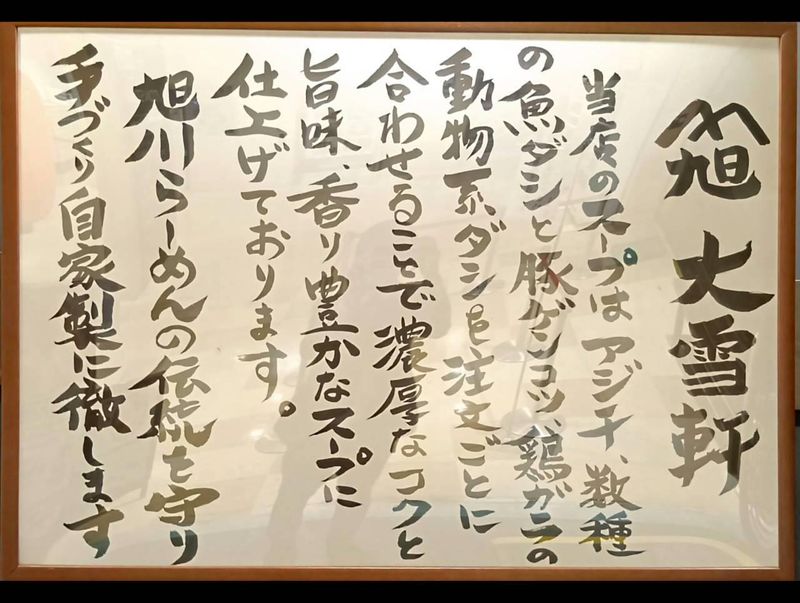 旭 大雪軒
当店のスープはアジ干、数種
の魚ダシと豚ゲンコツ、鶏ガラの
動物系ダシを注文ごとに
合わせることで濃厚なコクと
旨味、香り豊かなスープに
仕上げております。
旭川らーめんの伝統を守り
手づくり自家製に徹します